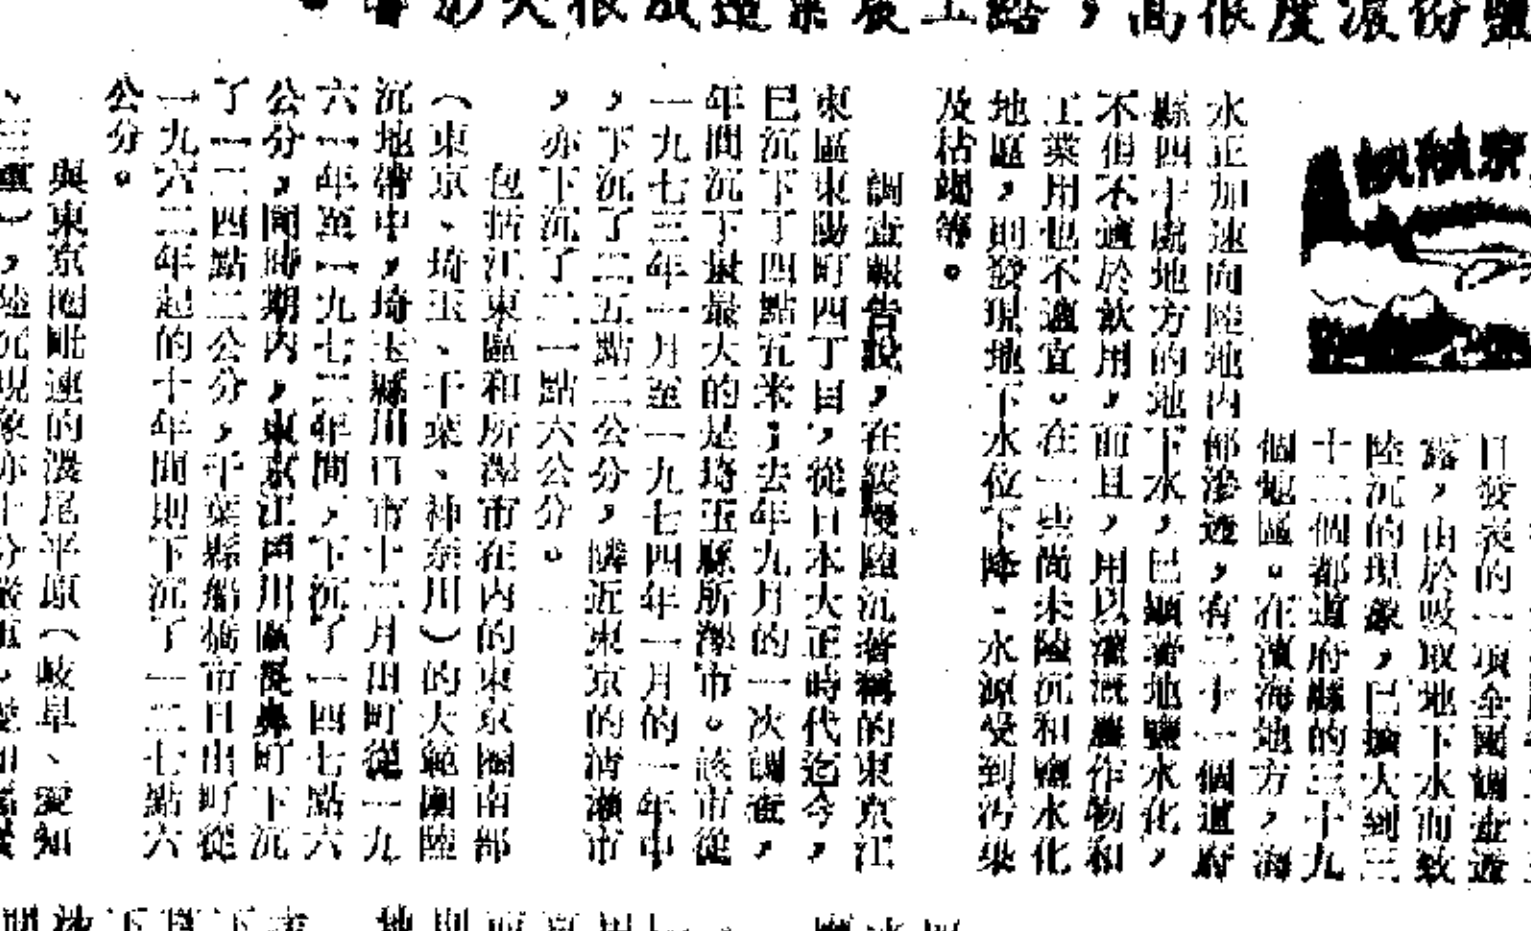 鹽份濃度很高，給工業農業造成很大影響。
日發表的一項全國調查透
露，由於吸取地下水而致
陸沉的現象，已擴大到三
十二個都道府縣的三十九
個地區。在濱海地方，海
水正加速向陸地內部滲透，有二十一個道府
縣四十處地方的地下水，已顯著地鹽水化，
不但不適於飲用，而且，用以灌溉農作物和
工業用也不適宜。在一些尚未陸沉和鹽水化
地區，則發現地下水位下降，水源受到污染
及枯竭等。
調查報告說，在緩慢陸沉著稱的東京江
東區東陽町四丁目，從日本大正時代迄今，
已沉下了四點五米；去年九月的一次調查，
年間沉下量最大的是琦玉縣所澤市。該市從
一九七三年一月至一九七四年一月的一年中
，下沉了二五點二公分，隣近東京的清瀨市
，亦下沉了二一點六公分。
包括江東區和所澤市在內的東京圈南部
（東京、埼玉、千葉、神奈川）的大範圍陸
沉地帶中，埼玉縣川口市十二月田町從一九
六一年至一九七二年間，下沉了一四七點六
公分，同時期內，東京江戶川區 町下沉
了一二四點二公分，千葉縣船橋市日出町從
一九六二年起的十年間則下沉了一二七點六
公分。
與東京圈毗連的濃尾平原（岐阜、愛知
、三重），陸沉現象亦十分嚴重，愛知